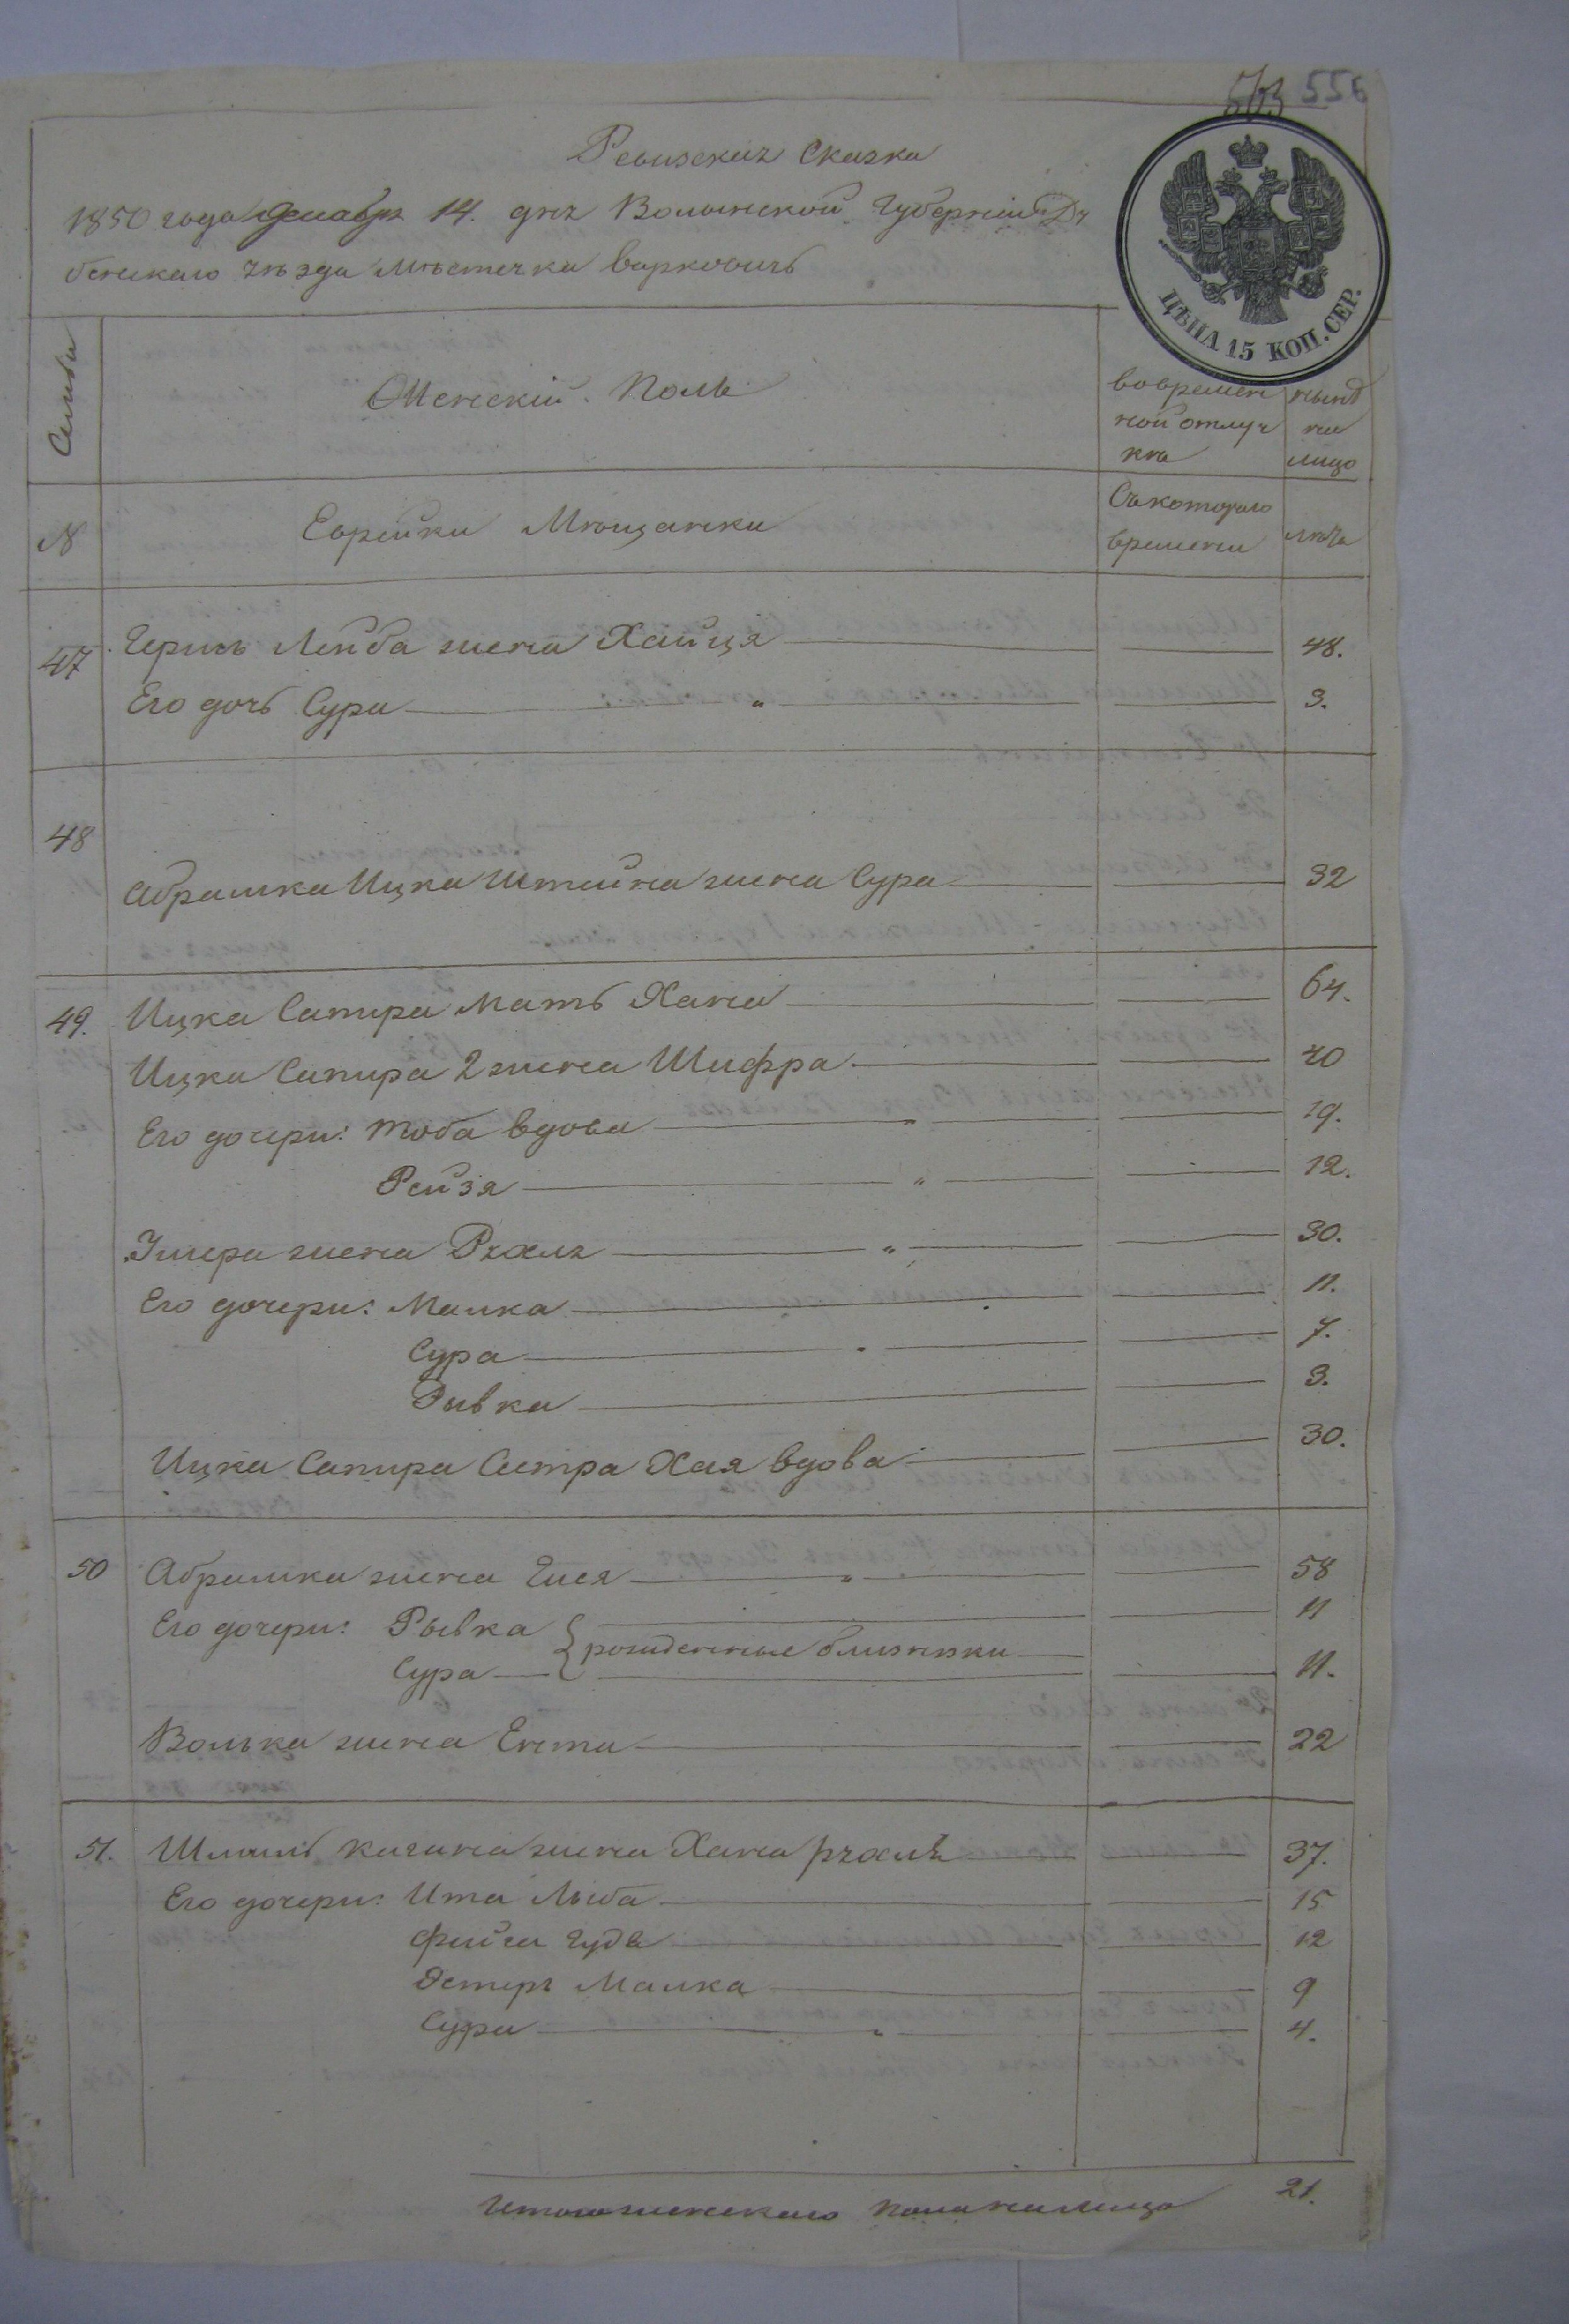 503 556
Ревизская Сказка
1850 года Декабря 14. дня Волынской Губернии Ду
бенскаго уѣзда мѣстечка Варковичь
ЦѢНА 15 КОП. СЕР.
Семьи
Женский Полъ
во времен
ной отлуч
кѣ
нынѣ
на
лицо
№
Еврейки Мѣщанки
Съ котораго
времени
лѣта
47 Герши Лейба жена Хайця 48.
Его дочь Сура " 3.
48
Абрамка Ицка Штейна жена Сура 32
49. Ицка Сапира мать Хана 64.
Ицка Сапира 2 жена Шифра 40
Его дочери: Тоба вдова " 19.
Рейзя " 12.
жена Рухля " 30.
Его дочери: Малка 11.
Сура 7.
Рывка 3.
Ицка Сапира Сестра Хая вдова 30.
50 Абрамка жена Гися " 58
Его дочери: Рывка 11
рожденные близняжки
Сура 11.
Волька жена Ента 22
51. жена Хана рухля 37.
Его дочери: Ита Люба 15
Фейга 12
Эстеръ Малка 9
Сура " 4.
Итого женскаго пола на лицо 21.